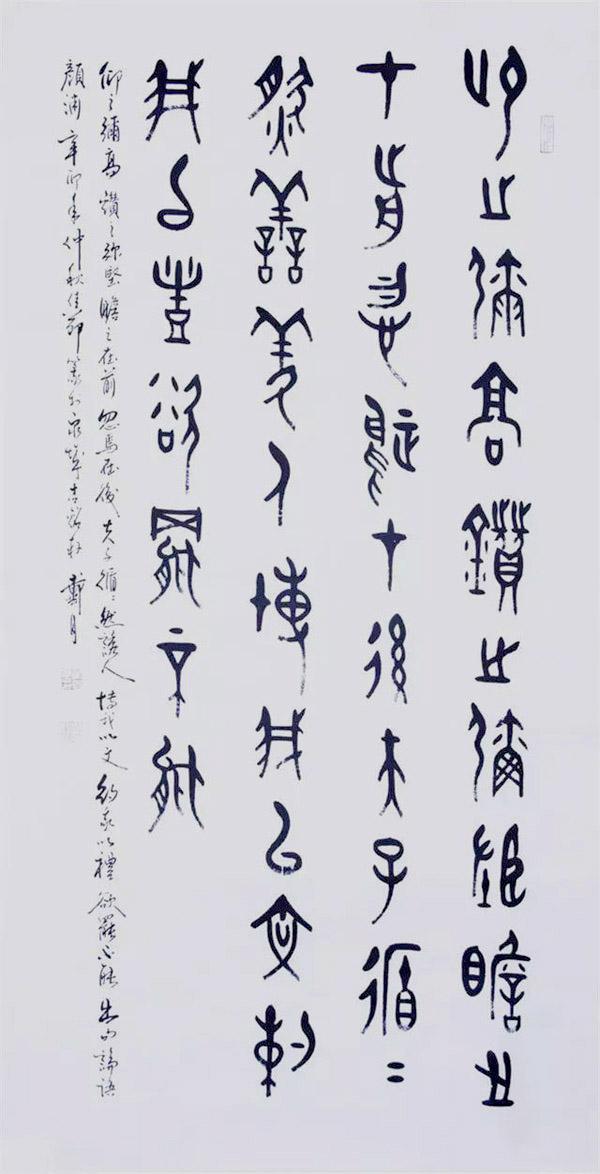 仰之彌高鑽之彌堅瞻之
在前忽焉在後夫子循〻
然善羑人博我以文約
我以禮欲罷不能
仰之彌高鑽之弥堅瞻之在前忽焉在後夫子循〻然誘人博我以文約我以禮欲罷不能出自論語
顏淵辛卯年仲秋佳節篆戴月